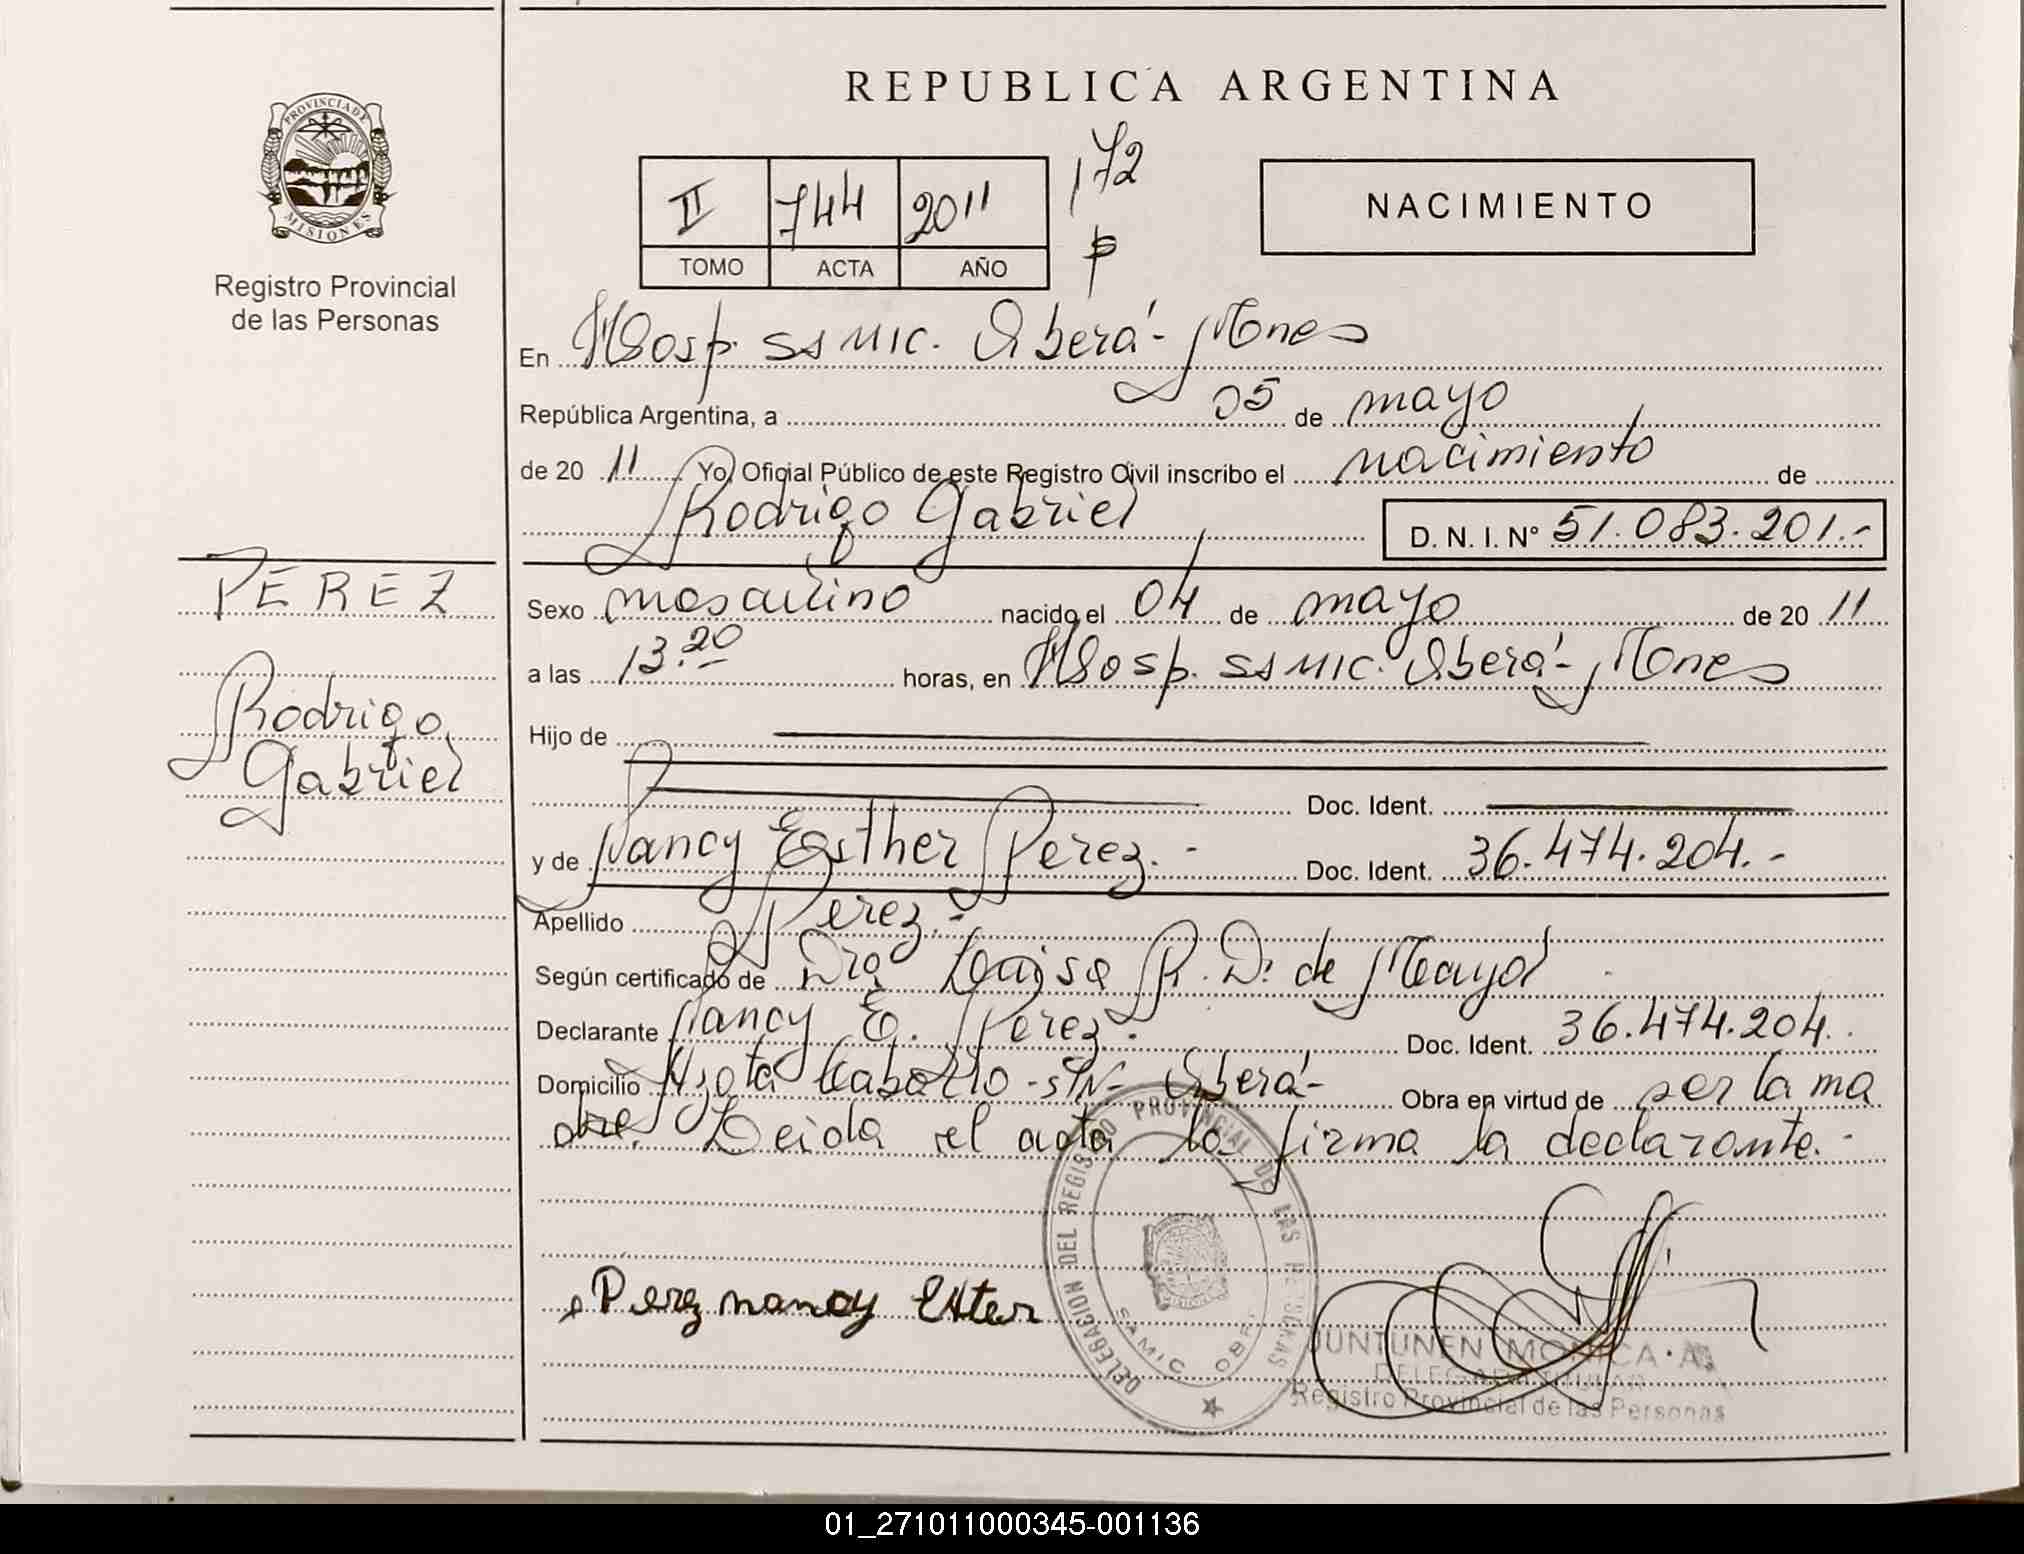 REPUBLICA ARGENTINA
PROVINCIA DE
MISIONES
Registro Provincial
de las Personas
II 744 2011 172
TOMO ACTA AÑO
NACIMIENTO
En Hosp. SAMIC. Oberá - Mnes
República Argentina, a 05 de mayo
de 20 11 Yo, Oficial Público de este Registro Civil inscribo el nacimiento de
Rodrigo Gabriel D. N. I. Nº 51.083.201.-
PEREZ
Rodrigo
Gabriel
Sexo masculino nacido el 04 de mayo de 20 11
a las 13.20 horas, en Hosp. SAMIC. Oberá - Mnes
Hijo de
Doc. Ident.
y de Nancy Esther Perez.- Doc. Ident. 36.474.204.-
Apellido Perez.-
Según certificado de Dra Luisa R. D. de Mayol
Declarante Nancy E. Perez.- Doc. Ident. 36.474.204.
Domicilio S/N- Oberá- Obra en virtud de ser la ma
dre. Leida el acta la firma la declarante.-
Perez nancy Ester
DELEGACION DEL REGISTRO PROVINCIAL DE LAS PERSONAS
SAMIC OBERA
JUNTUNEN MONICA A.
DELEGADA TITULAR
Registro Provincial de las Personas
01_271011000345-001136